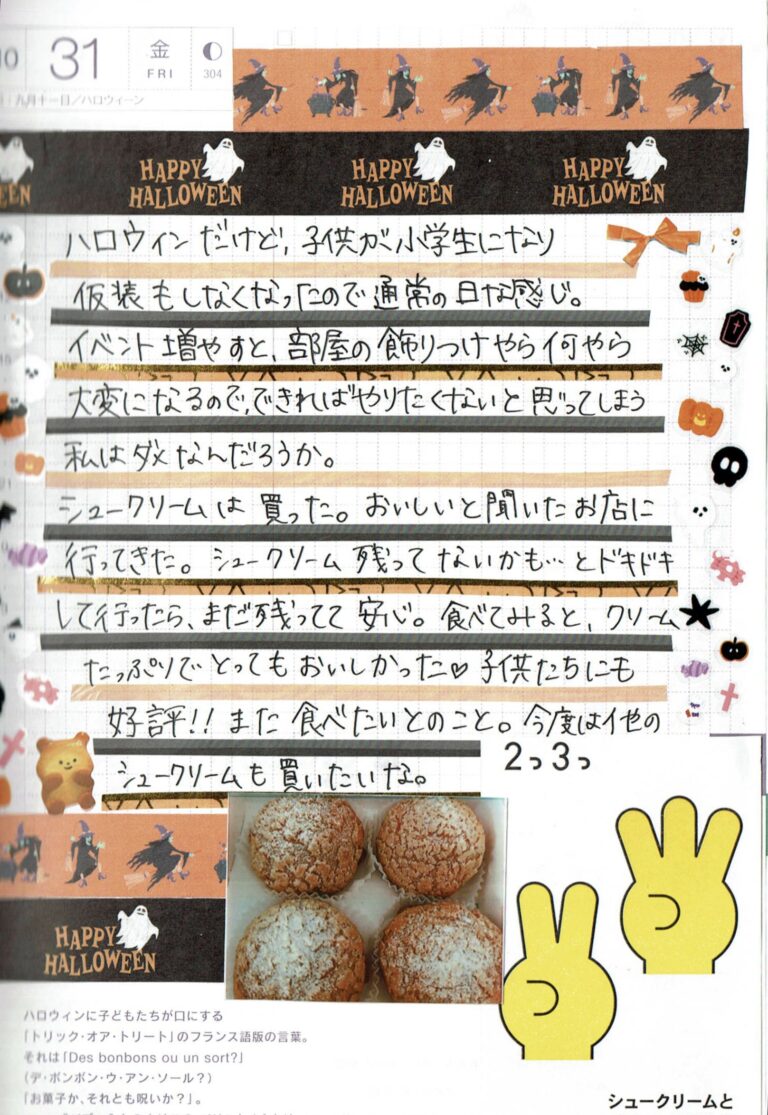 10
31
金
FRI
304
九月十一日/ハロウィーン
HAPPY HALLOWEEN
HAPPY HALLOWEEN
HAPPY HALLOWEEN
ハロウィンだけど、子供が小学生になり
仮装もしなくなったので通常の日な感じ。
イベント増やすと、部屋の飾りつけやら何やら
大変になるので、できればやりたくないと思ってしまう
私はダメなんだろうか。
シュークリームは買った。おいしいと聞いたお店に
行ってきた。シュークリーム残ってないかも…とドキドキ
して行ったら、まだ残ってて安心。食べてみると、クリーム
たっぷりでとってもおいしかった♡子供たちにも
好評!!また食べたいとのこと。今度は他の
シュークリームも買いたいな。
2っ3っ
HAPPY HALLOWEEN
ハロウィンに子どもたちが口にする
「トリック・オア・トリート」のフランス語版の言葉。
それは「Des bonbons ou un sort?」
(デ・ボンボン・ウ・アン・ソール?)
「お菓子か、それとも呪いか?」。
シュークリームと